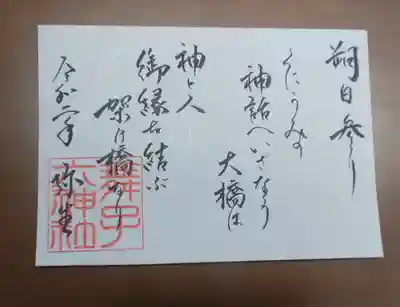 朔日参り
くにうみの
神話へいざなう
大橋は
神と人
御縁を結ぶ
架け橋なり
令和二年
弥生
舞子
六神社